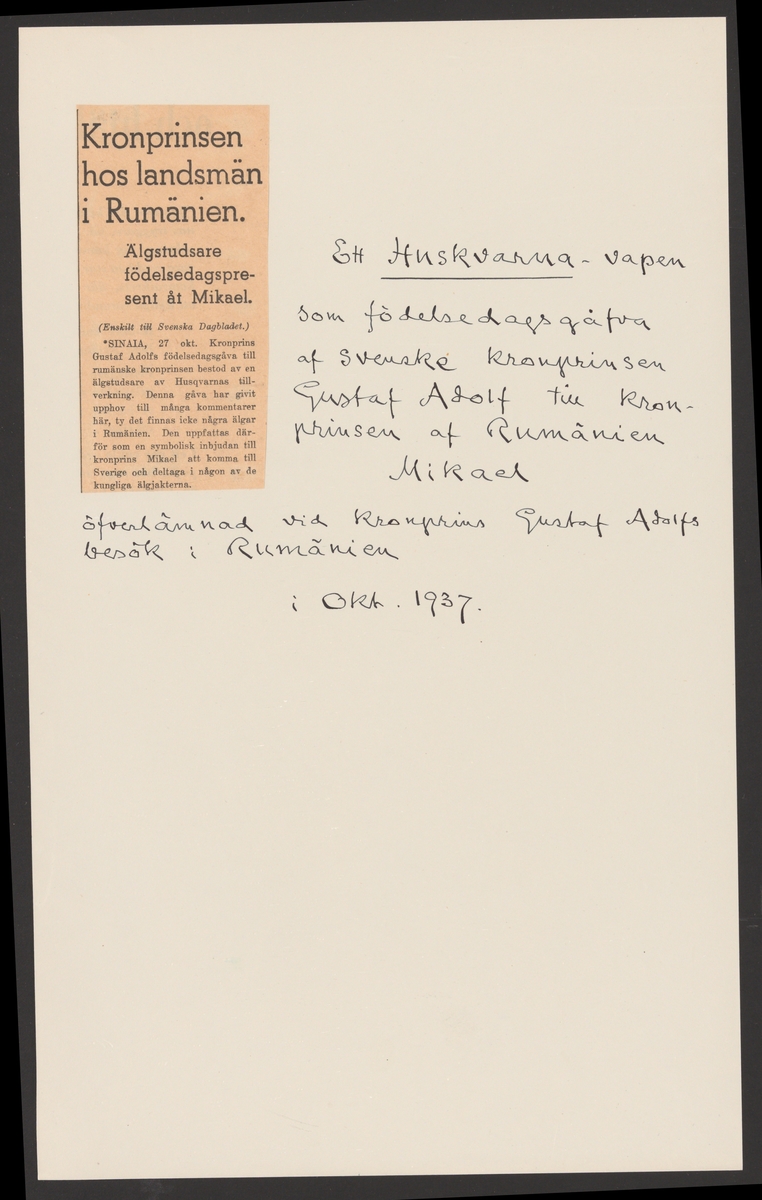 Kronprinsen
hos landsmän
i Rumänien.
Älgstudsare
födelsedagspre-
sent åt Mikael.
(Enskilt till Svenska Dagbladet.)
*SINAIA, 27 okt. Kronprins
Gustaf Adolfs födelsedagsgåva till
rumänske kronprinsen bestod av en
älgstudsare av Husqvarnas till-
verkning. Denna gåva har givit
upphov till många kommentarer
här, ty det finnas icke några älgar
i Rumänien. Den uppfattas där-
för som en symbolisk inbjudan till
kronprins Mikael att komma till
Sverige och deltaga i någon av de
kungliga älgjakterna.
Ett Huskvarna-vapen
som födelsedagsgåfva
af Svenske kronprinsen
Gustaf Adolf till kron-
prinsen af Rumänien
Mikael
öfverlämnad vid kronprins Gustaf Adolfs
besök i Rumänien
i Okt. 1937.